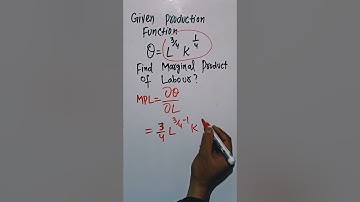 Given Production
Function
Q = L^3/4 K^1/4
Find Marginal Product
of Labour?
MPL = ∂Q/∂L
= 3/4 L^3/4-1 K